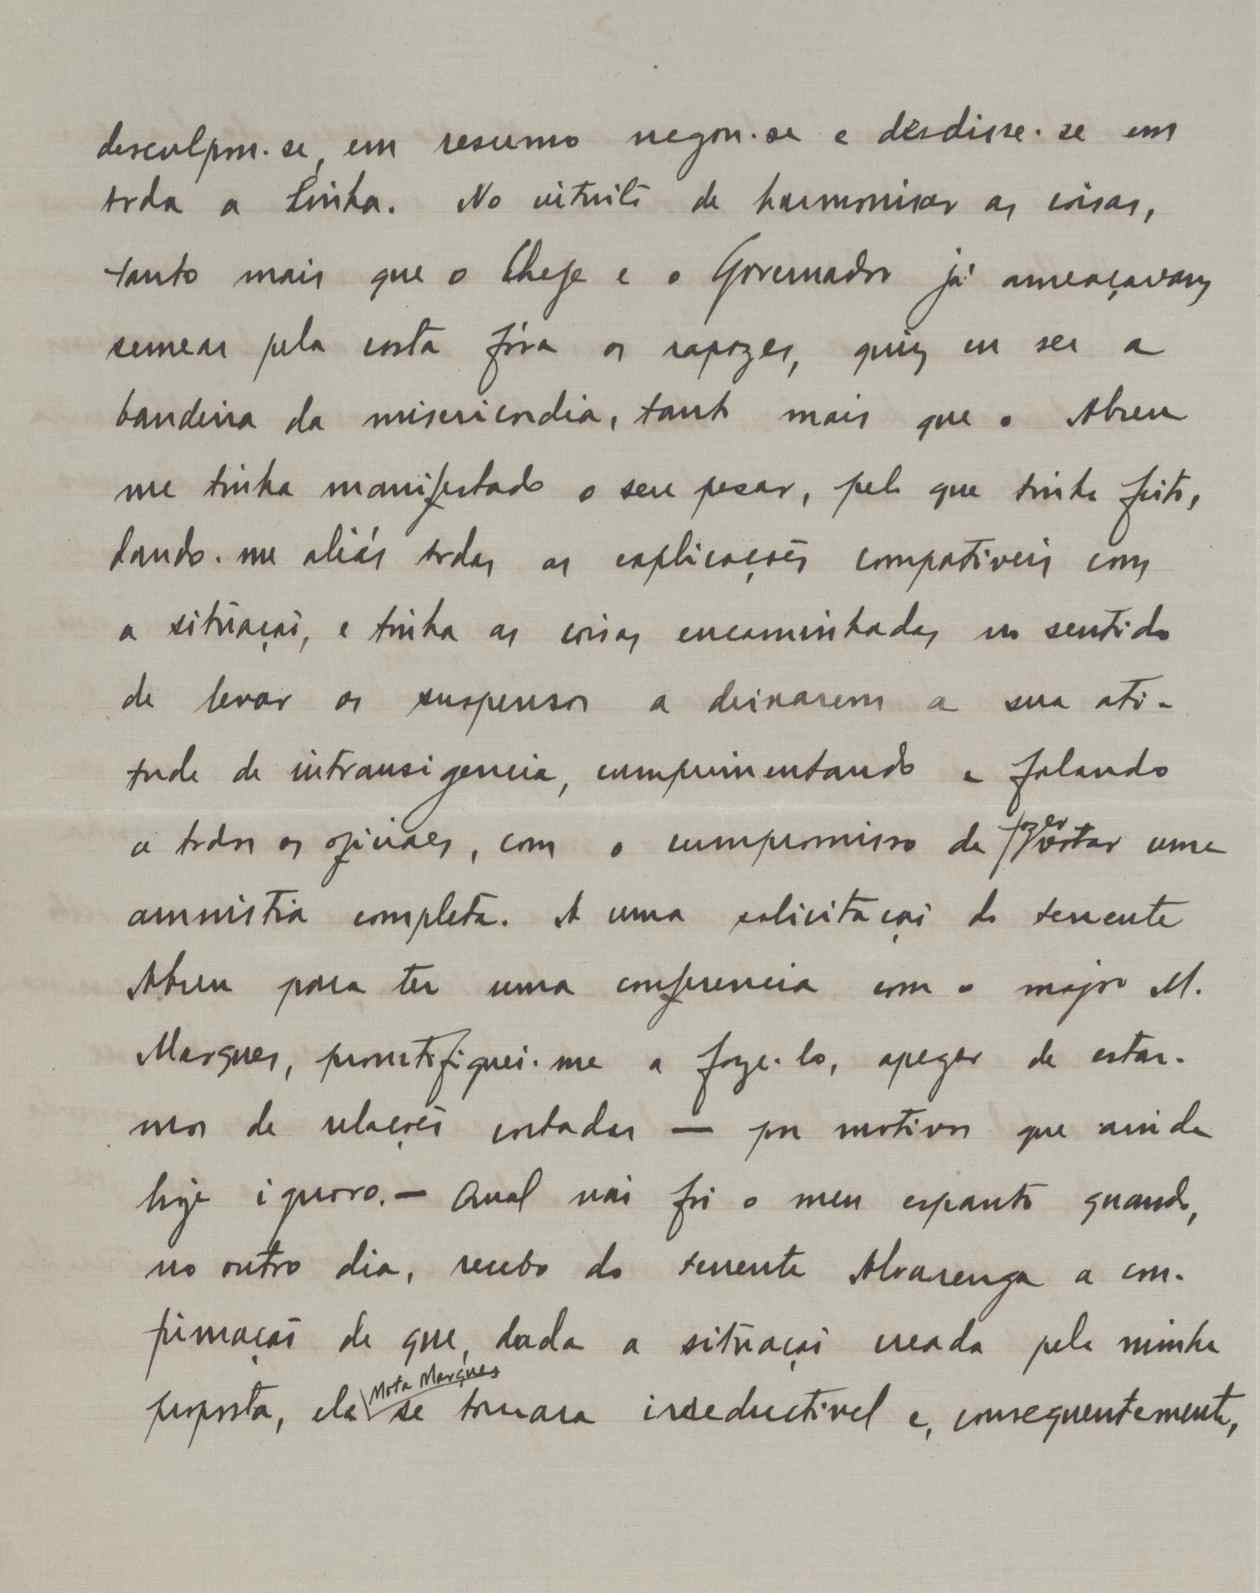 desculpou-se, em resumo negou-se e desdisse-se em
toda a linha. No intuito de harmonisar as coisas,
tanto mais que o Chefe e o Governador já ameaçavam
semear pela costa fóra os rapazes, quiz eu ser a
bandeira da misericordia, tanto mais que o Abreu
me tinha manifestado o seu pesar, pelo que tinha feito,
dando-me aliás todas as explicações compativeis com
a situação, e tinha as coisas encaminhadas no sentido
de levar os suspensos a deixarem a sua ati-
tude de intransigencia, cumprimentando e falando
a todos os oficiaes, com o compromisso de fazer votar uma
amnistia completa. A uma solicitação do tenente
Abreu para ter uma conferencia com o major M.
Marques, prontifiquei-me a faze-lo, apezar de estar-
mos de relações cortadas — por motivos que ainda
hoje ignoro. — Qual não foi o meu espanto quando,
no outro dia, recebo do tenente Alvarenga a con-
firmação de que, dada a situação creada pela minha
proposta, ele Mota Marques se tornara irreductivel e, consequentemente,